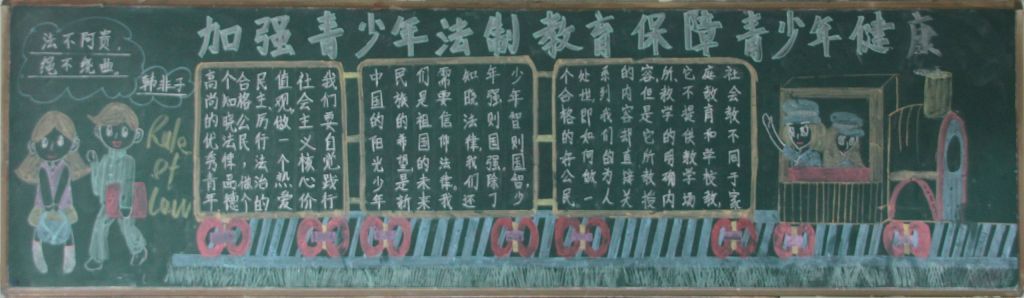 加强青少年法制教育保障青少年健康
法不阿贵,
绳不绕曲。
韩非子
Rule
of
Law
社会教不同于家
庭教育和学校教,
它不提供教学场
所,教学的明确内
容,但是它所教授
的内容却直接关
系到我们的为人
处世,即如何做一
个合格的好公民。
少年智则国智,少
年强则国强。除了
知晓法律,我们还
需要信仰法律。我
们是祖国的未来
民族的希望,是新
中国的阳光少年
我们要自觉践行
社会主义核心价
值观,做一个热爱
民主厉行法治的
合格公民,做个
个知晓法律品德
高尚的优秀青年